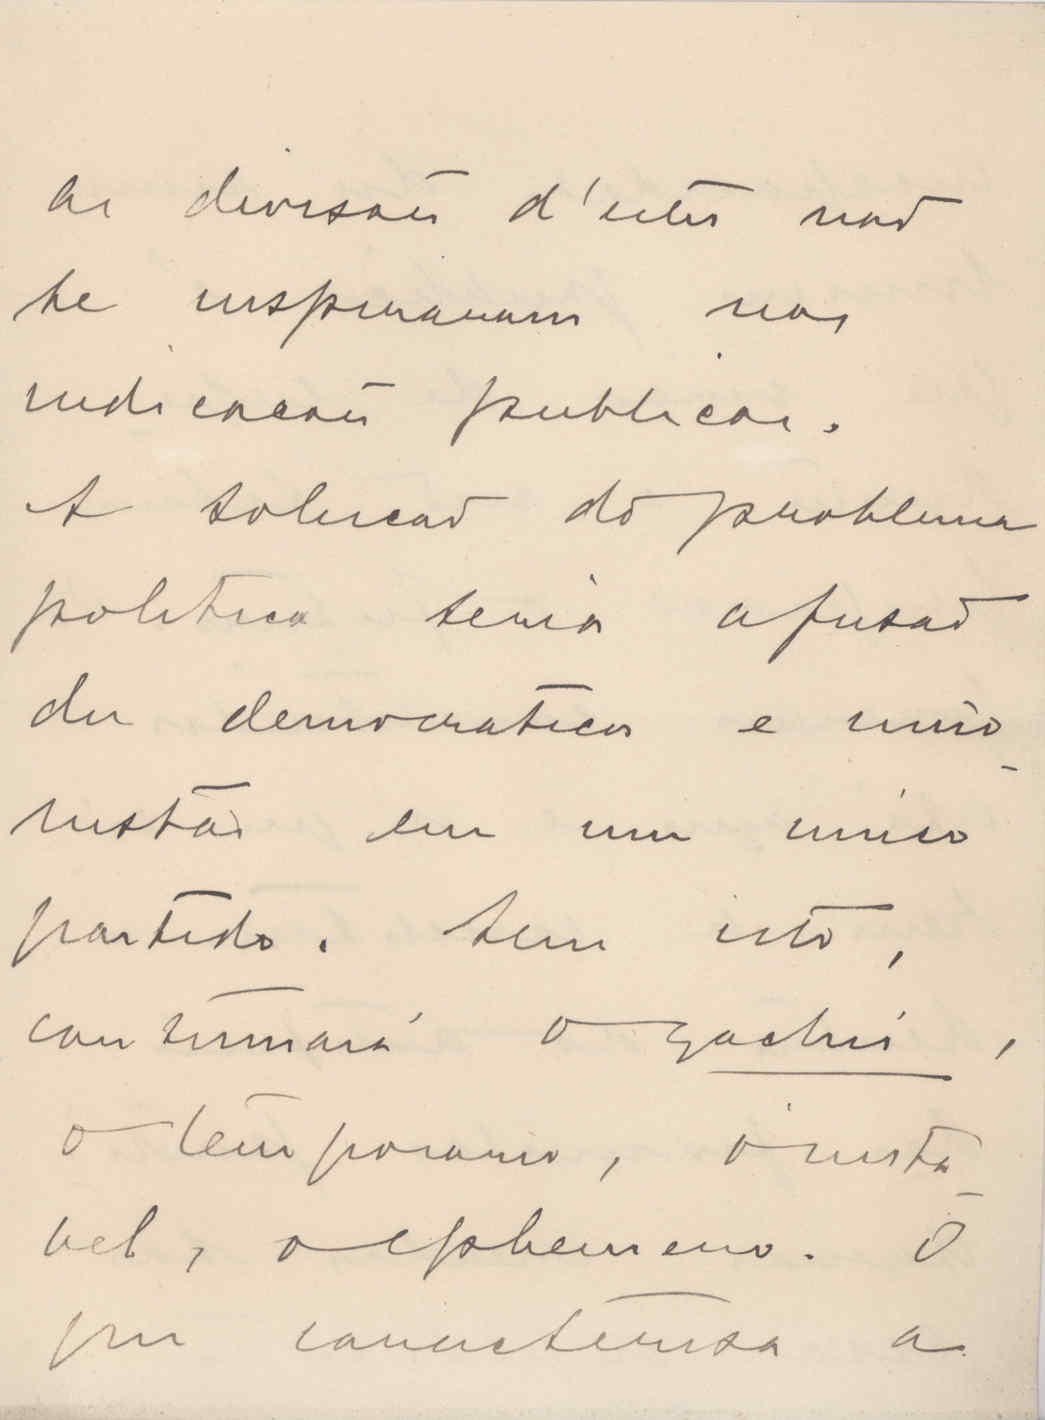 as divisoẽs d'estes naõ
se inspiravam nas
indicacoẽs publicas.
A soluçaõ do problema
politico seria a fusaõ
dos democraticos e unio-
nistas em um unico
partido. Sem isto,
continuará o gachis,
o temporario, o insta-
vel, o ephemero. O
que caracterisa a